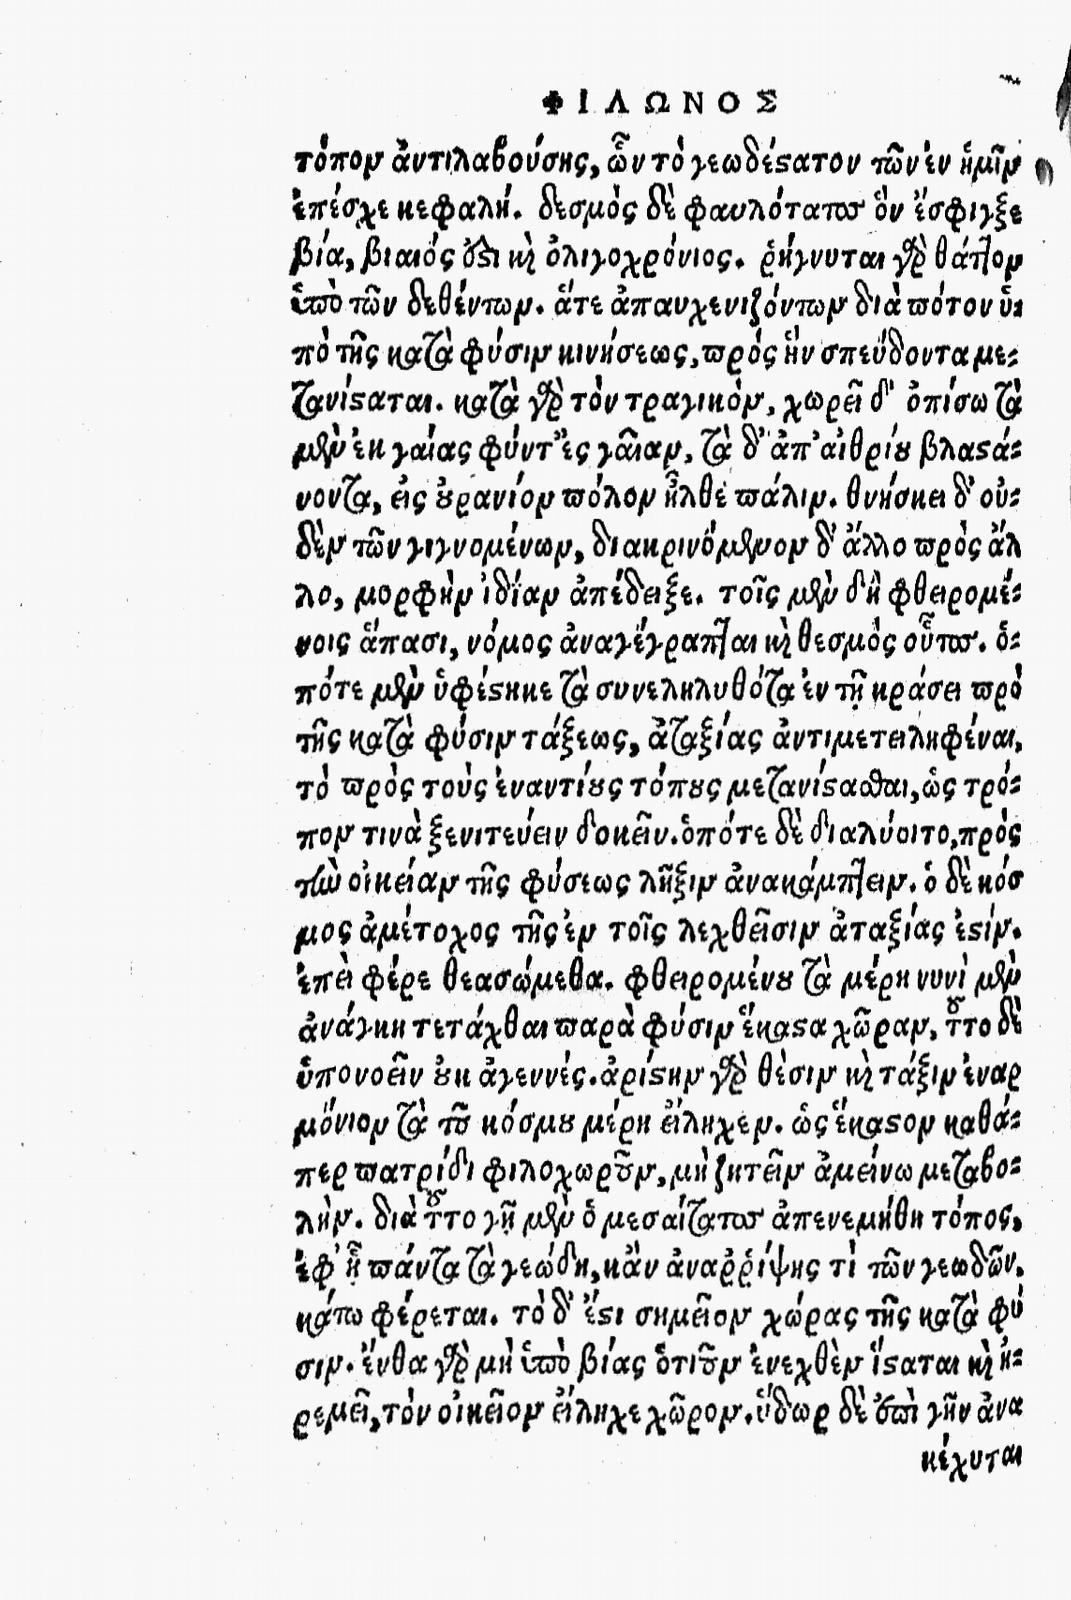 ΦΙΛΩΝΟΣ
τόπον ἀντιλαβούσης, ὧν τὸ γεωδέςατον τῶν ἐν ἡμῖν
ἐπέσχε κεφαλή. δεσμὸς δὲ φαυλότατος ὃν ἔσφιγξε
βία, βιαιός ὅς ἐςι κὶ ὀλιγοχρόνιος. ῥήγνυται γὰρ θάττον
ὑπὸ τῶν δεθέντων. ἅτε ἀπαυχενιζόντων διὰ πότον ὑ-
πὸ τῆς κατὰ φύσιν κινήσεως, πρὸς ἣν σπεύδοντα με-
τανίςαται. κατὰ γὰρ τὸν τραγικὸν, χωρεῖ δ' ὀπίσω τὰ
μὲν ἐκ γαίας φύντ' ἐς γαῖαν, τὰ δ' ἀπ' αἰθρίου βλαςά-
νοντα, εἰς οὐρανίον πόλον ἦλθε πάλιν. θνήσκει δ' οὐ-
δὲν τῶν γιγνομένων, διακρινόμενον δ' ἄλλο πρὸς ἄλ
λο, μορφὴν ἰδίαν ἀπέδειξε. τοῖς μὲν δὴ φθειρομέ-
νοις ἅπασι, νόμος ἀναγέγραπται κὶ θεσμὸς οὗτος. ὁ-
πότε μὲν ὑφέςηκε τὰ συνεληλυθότα ἐν τῇ κράσει πρὸ
τῆς κατὰ φύσιν τάξεως, ἀταξίας ἀντιμετειληφέναι,
τὸ πρὸς τοὺς ἐναντίους τόπους μετανίςασθαι, ὡς τρό-
πον τινὰ ξενιτεύειν δοκεῖν. ὁπότε δὲ διαλύοιτο, πρὸς
τὴν οἰκείαν τῆς φύσεως λῆξιν ἀνακάμπτειν. ὁ δὲ κόσ
μος ἀμέτοχος τῆς ἐν τοῖς λεχθεῖσιν ἀταξίας ἐςίν.
ἐπεὶ φέρε θεασώμεθα. φθειρομένου τὰ μέρη νυνὶ μὲν
ἀνάγκη τετάχθαι παρὰ φύσιν ἕκαςα χῶραν, τοῦτο δὲ
ὑπονοεῖν οὐκ ἀγεννές. ἀρίςην γὰρ θέσιν κὶ τάξιν ἐναρ
μόνιον τὰ τοῦ κόσμου μέρη εἴληχεν. ὡς ἕκαςον καθά-
περ πατρίδι φιλοχωροῦν, μὴ ζητεῖν ἀμείνω μεταβο-
λήν. διὰ τοῦτο γῇ μὲν ὁ μεσαίτατος ἀπενεμήθη τόπος,
ἐφ' ᾗ πάντα τὰ γεώδη, κἂν ἀναῤῥίψης τὶ τῶν γεωδῶν,
κάπω φέρεται. τὸ δ' ἔςι σημεῖον χώρας τῆς κατὰ φύ
σιν. ἔνθα γὰρ μὴ ὑπὸ βίας ὁτιοῦν ἐνεχθὲν ἵςαται κὶ ἠ-
ρεμεῖ, τὸν οἰκεῖον εἴληχε χῶρον. ὕδωρ δὲ ἐπὶ γῆν ἀνα
κέχυται